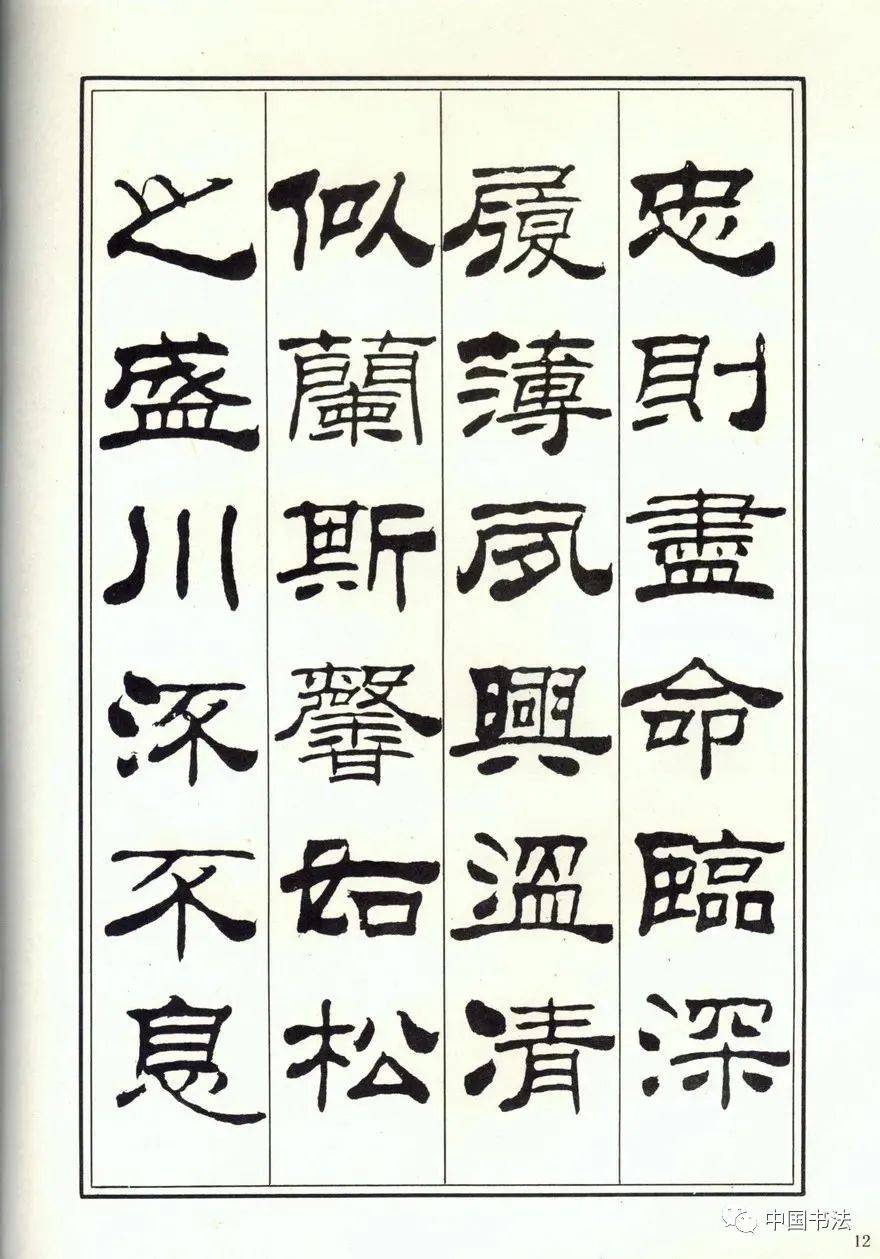 忠則盡命臨深
履薄夙興溫凊
似蘭斯馨如松
之盛川流不息
中国书法
12